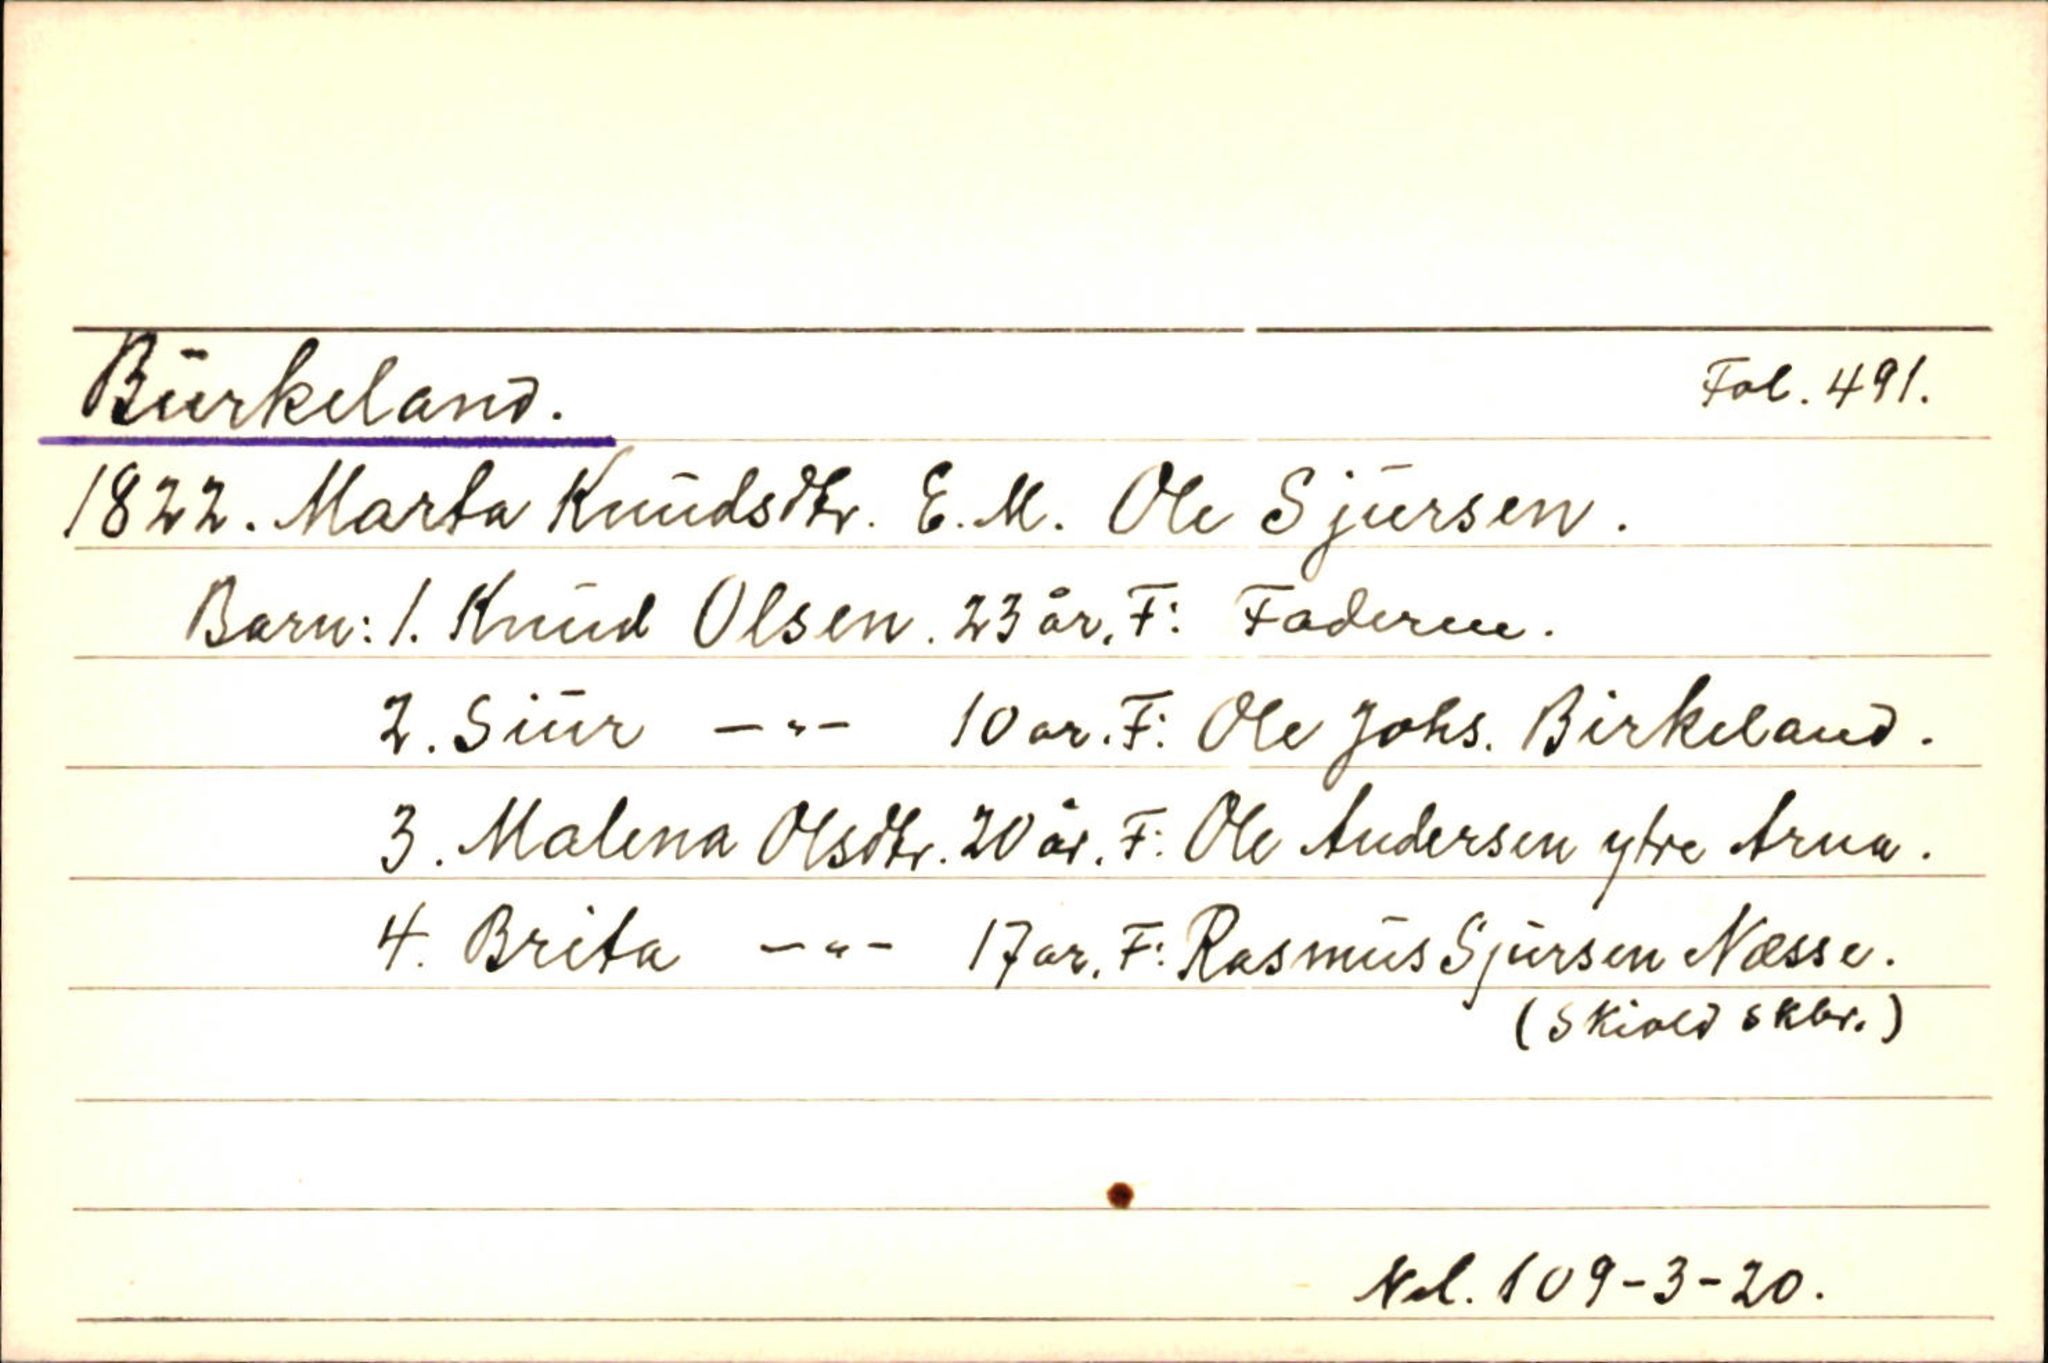 Burkeland. Fol. 491.
1822. Marta Knudsdtr. E. M. Ole Sjursen.
Barn: 1. Knud Olsen. 23 år, F: Faderen.
2. Siur —"— 10 ar. F: Ole Johs. Birkeland.
3. Malena Olsdtr. 20 år. F: Ole Andersen ytre Arna.
4. Brita —"— 17 ar, F: Rasmus Sjursen Næsse.
(Skiold skbr.)
Nd. 109-3-20.